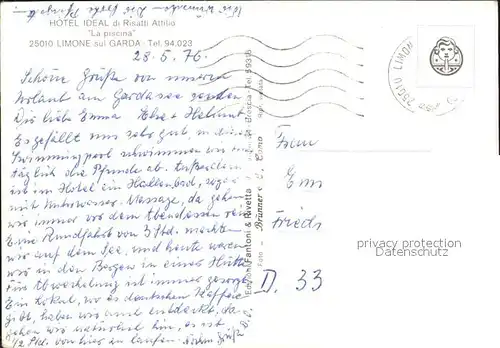 HOTEL IDEAL di Risatti Attilio
"La piscina"
25010 LIMONE sul GARDA - Tel. 94.023
28.5.76
Schöne Grüße von unserem
Urlaub am Gardasee senden
Dir liebe Emma Else + Helmut
Es gefällt uns sehr gut, in diesem
Swimmingpool schwimmen wir uns
täglich die Pfunde ab. Außerdem
ist im Hotel ein Hallenbad, sogar
mit Unterwasser-Massage, da gehen
wir immer vor dem Abendessen rein
Eine Rundfahrt von 3 Std. machten
wir auf dem See, und heute waren
wir in den Bergen in einer Hütte
Für Abwechslung ist immer gesorgt
Ein Lokal, wo es deutschen Kaffee
gibt, haben wir auch entdeckt, da
gehen wir natürlich hin, es ist
1/2 Std. von hier zu laufen.
Ediz. Fantoni & Rivetta
Foto - Brünner & C., Como
Riproduzione vietata
25010 LIMONE
Frau
Em
Frieds
D. 33
privacy protection
Datenschutz